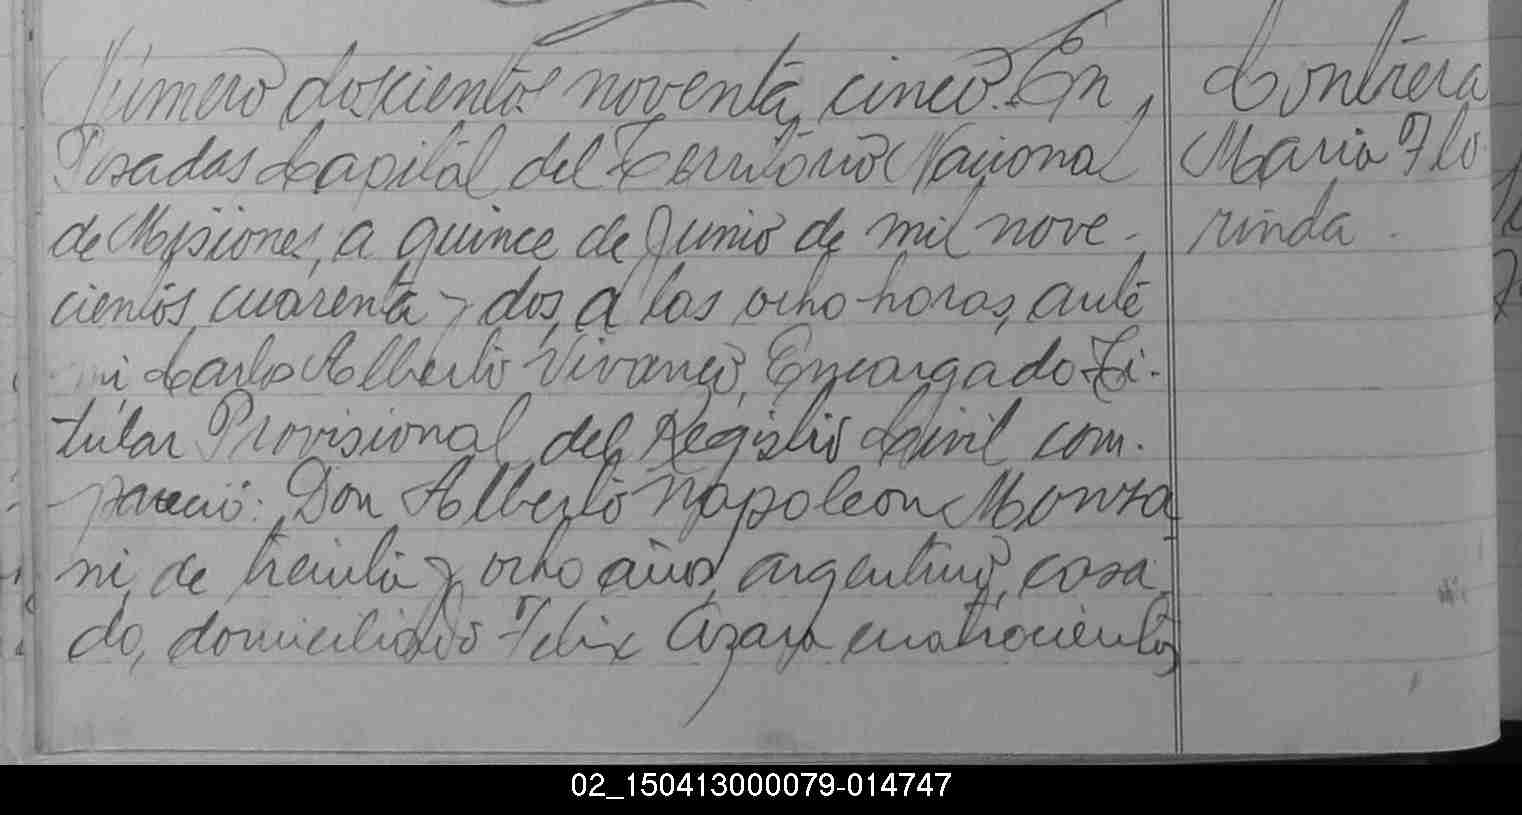 Número doscientos noventa, cinco. En
Posadas Capital del Territorio Nacional
de Misiones, a quince de Junio de mil nove-
cientos cuarenta y dos, a las ocho horas, ante
mi, Carlos Alberto Vivanco, Encargado Ti-
tular Provisional del Registro Civil com-
pareció: Don Alberto Napoleon Monza
ni, de treinta y ocho años, argentino, casa
do, domiciliado Felix Azara cuatrocientos
Contrera
Maria Flo
rinda.
02_150413000079-014747